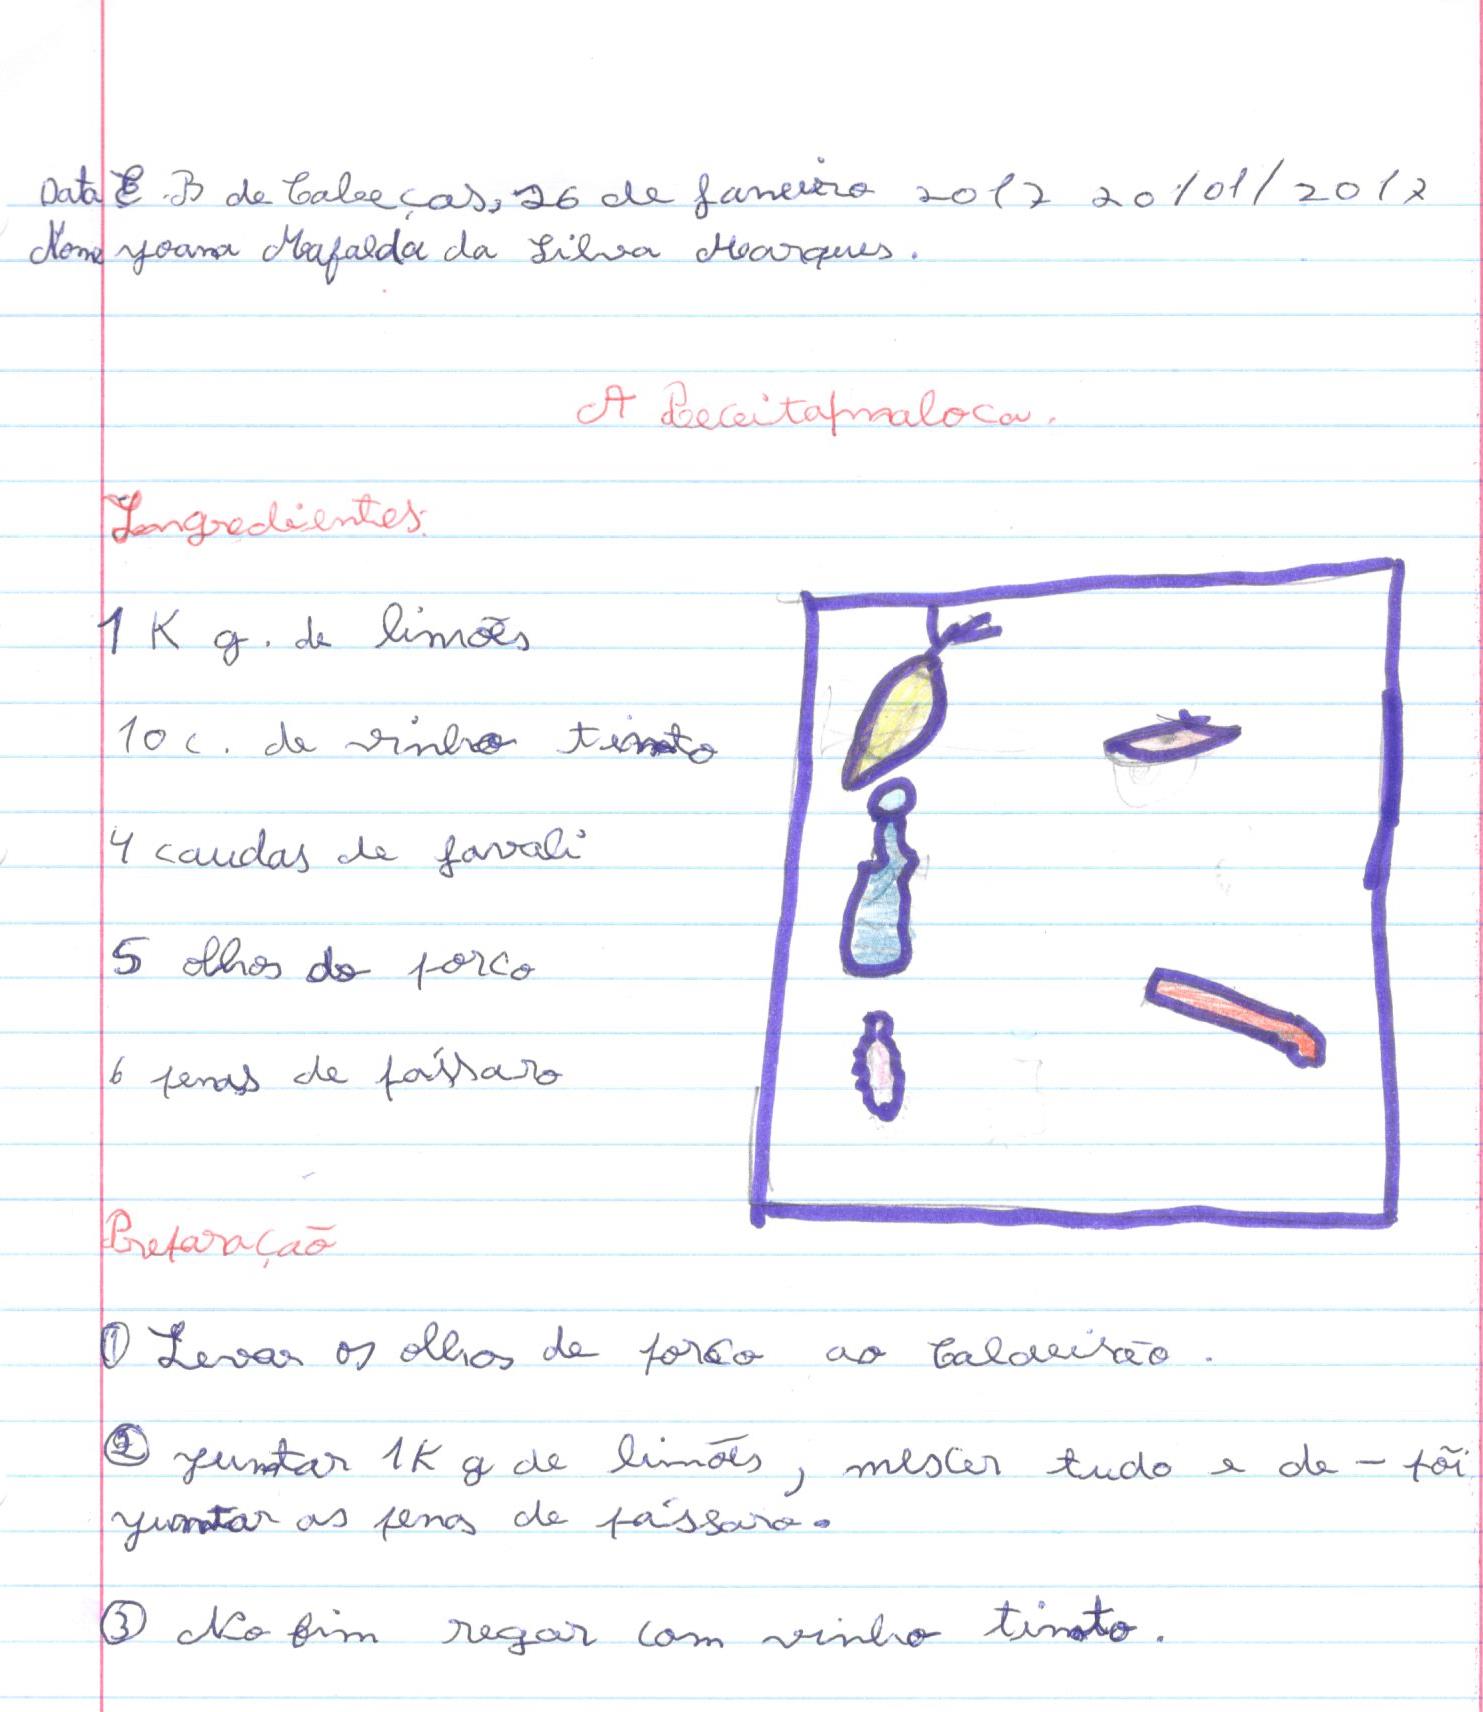 Data E.B de Cabeças, 26 de Janeiro 2012 20/01/2012
Nome Joana Mafalda da Silva Marques.
A Receita maloca.
Ingredientes:
1 K g. de limões
10 c. de vinho tinto
4 caudas de javali
5 olhos do porco
6 penas de pássaro
Preparação
① Levar os olhos de porco ao Caldeirão.
② Juntar 1K g de limões, mescer tudo e de - põi
juntar as penas de pássaro.
③ No fim regar com vinho tinto.